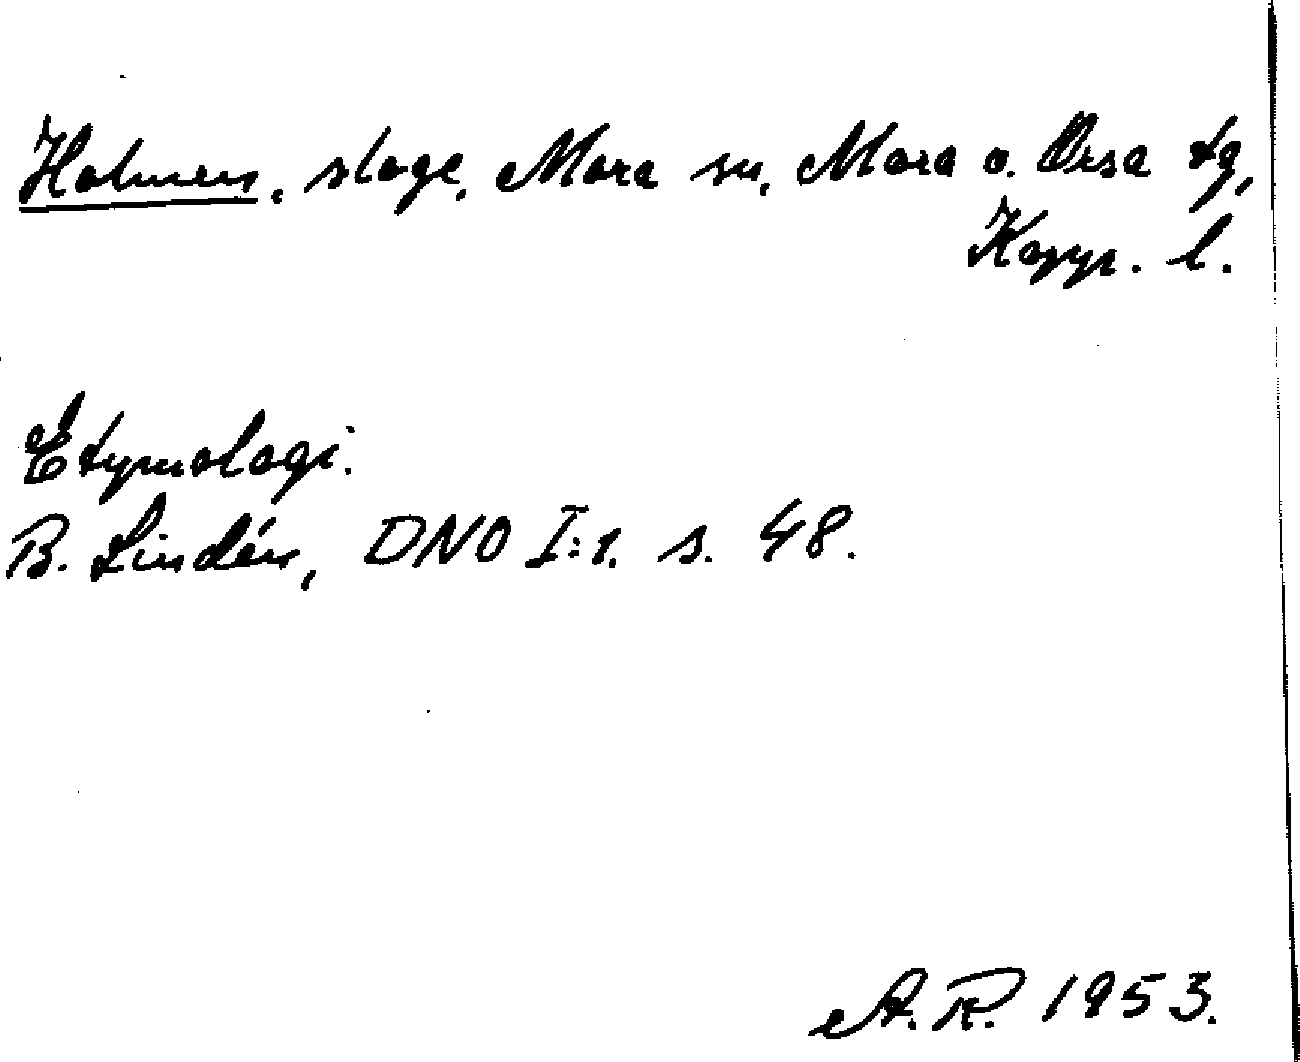 Holmen, sloge, Mora sn, Mora o. Orsa tg,
Kopp. l.
Etymologi.
B. Lindén, DNO I:1. s. 48.
A.R. 1953.